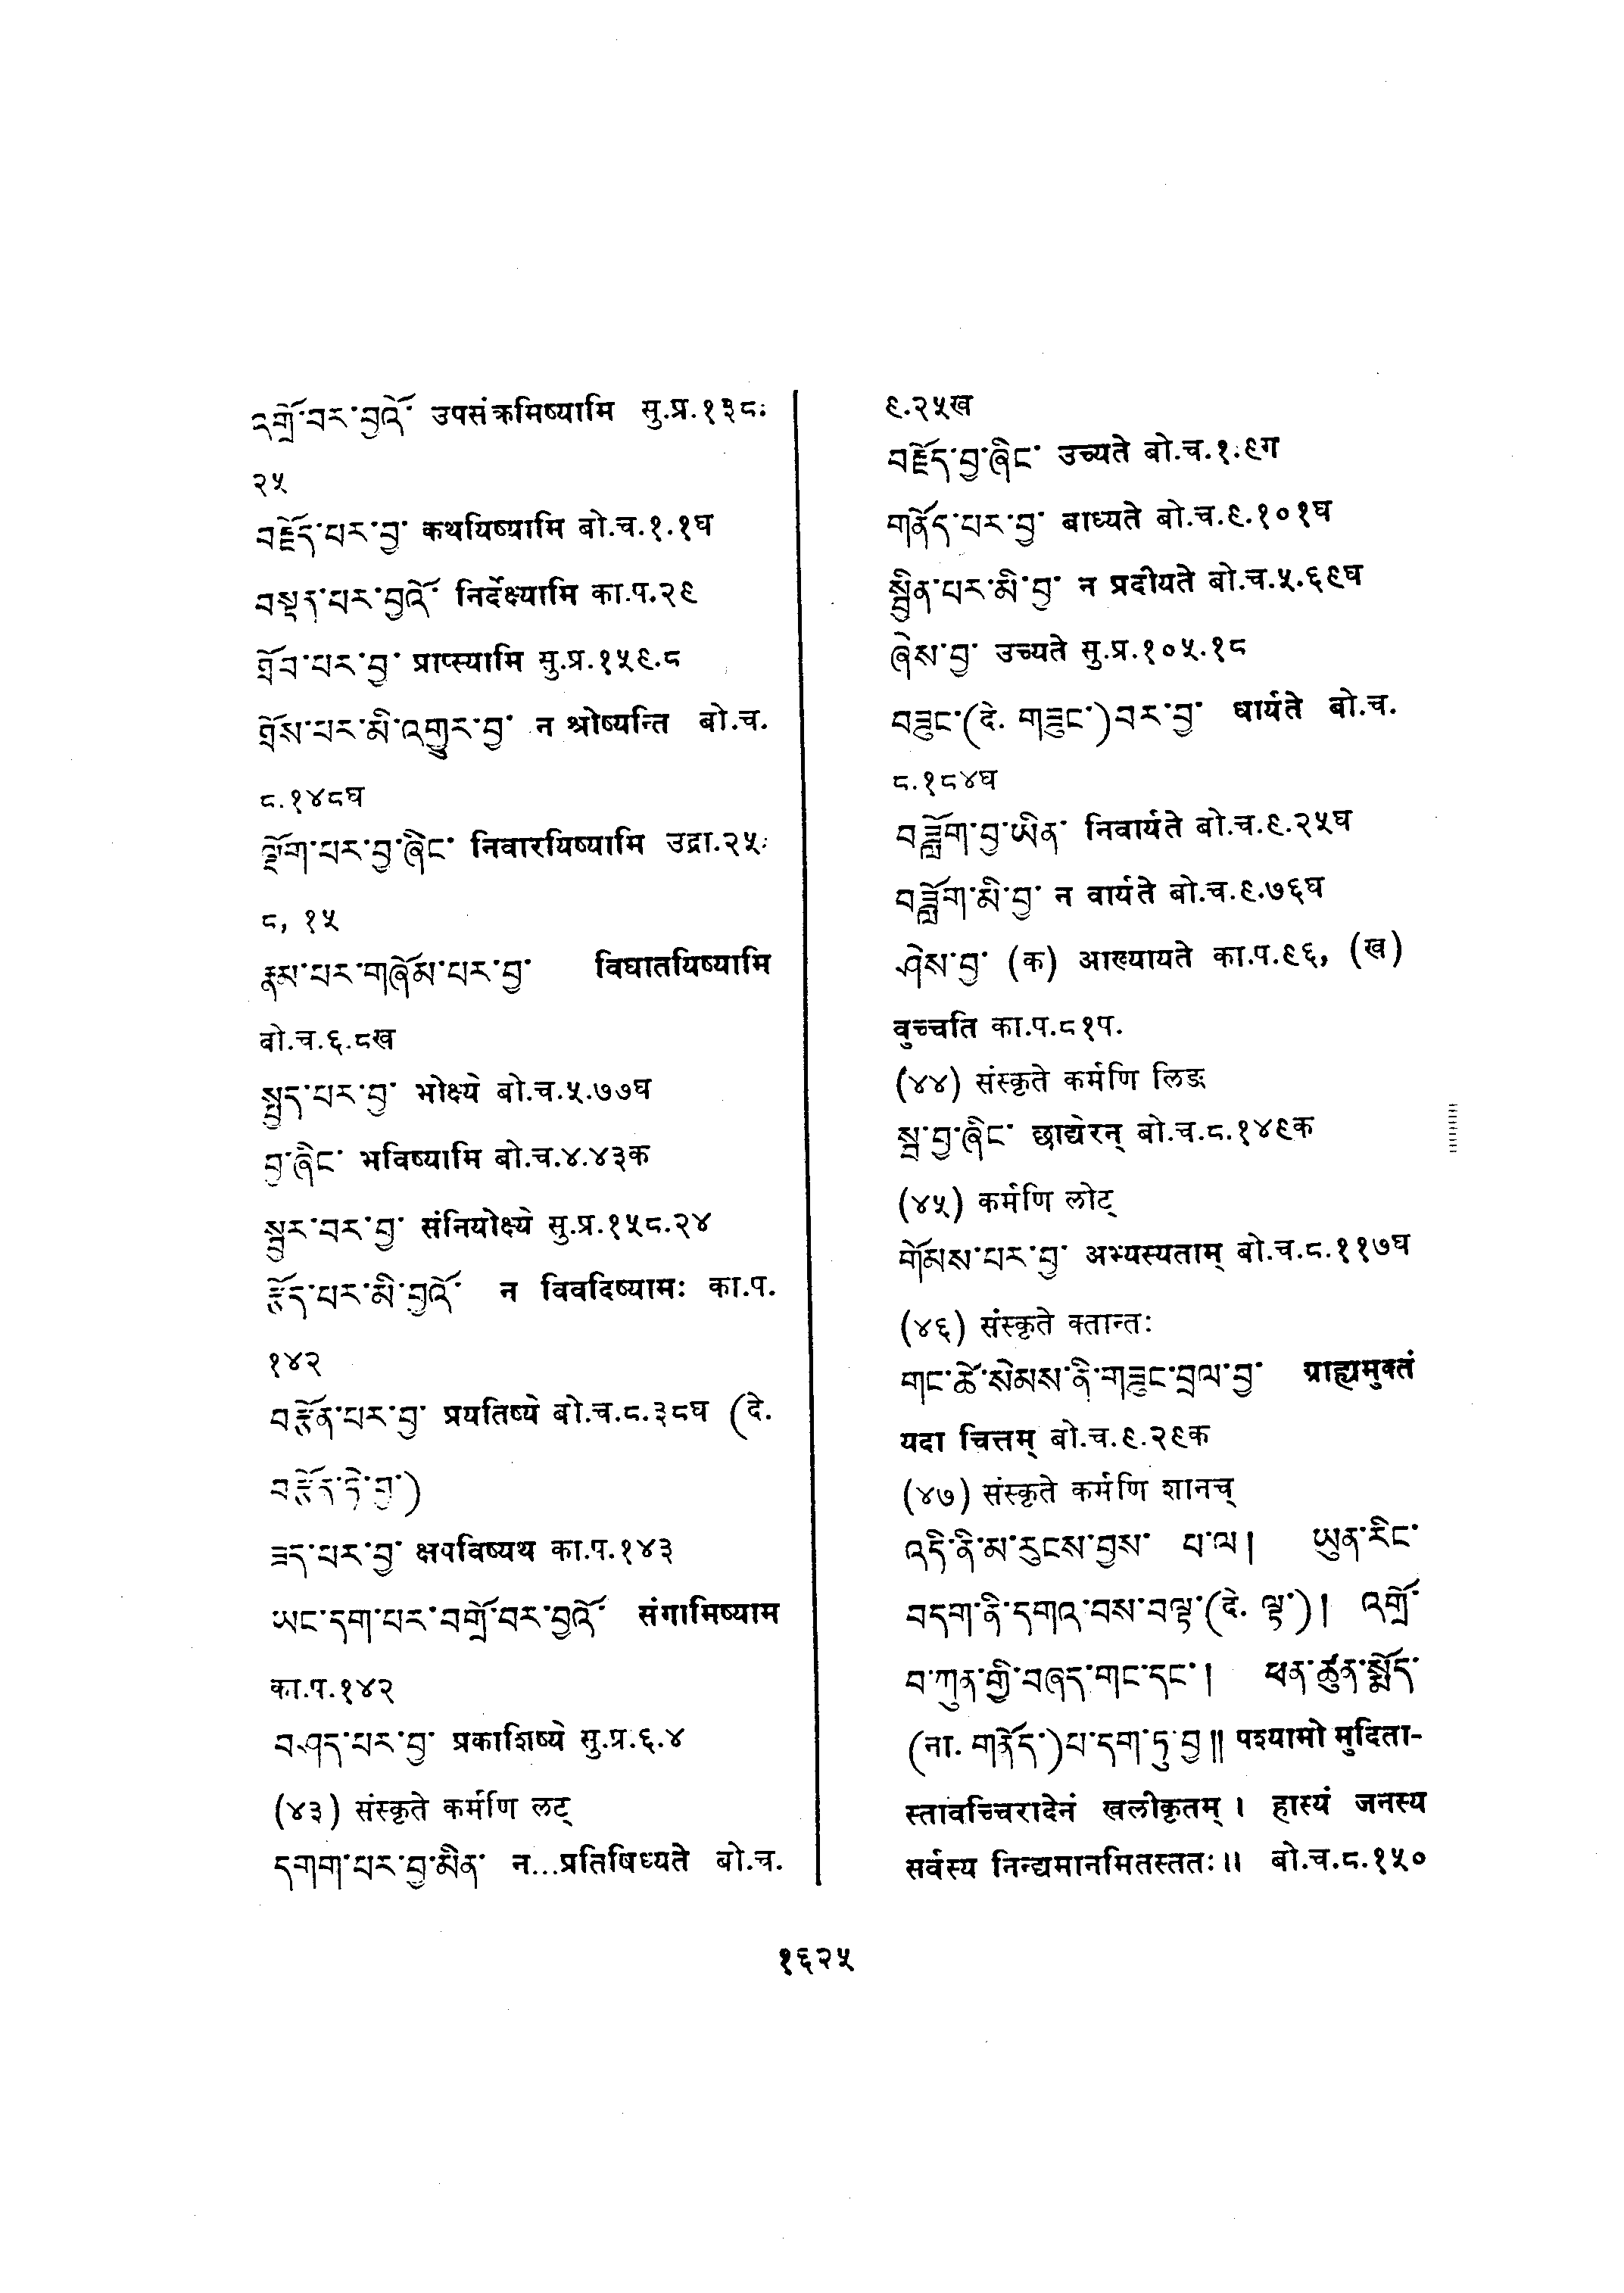 འགྲོ་བར་བྱའོ་ उपसंक्रमिष्यामि सु.प्र.१३८.
२५
བརྗོད་པར་བྱ་ कथयिष्यामि बो.च.१.१घ
བསྟན་པར་བྱའོ་ निर्देक्ष्यामि का.प.२९
ཐོབ་པར་བྱ་ प्राप्स्यामि सु.प्र.१५९.८
ཐོས་པར་མི་འགྱུར་བྱ་ न श्रोष्यन्ति बो.च.
८.१४८घ
ལྡོག་པར་བྱ་ཞིང་ निवारयिष्यामि उद्रा.२५.
८, १५
རྣམ་པར་གཞོམ་པར་བྱ་ विघातयिष्यामि
बो.च.६.८ख
སྤྱད་པར་བྱ་ भोक्ष्ये बो.च.५.७७घ
བྱ་ཞིང་ भविष्यामि बो.च.४.४३क
སྦྱར་བར་བྱ་ संनियोक्ष्ये सु.प्र.१५८.२४
རྩོད་པར་མི་བྱའོ་ न विवदिष्यामः का.प.
१४२
བརྩོན་པར་བྱ་ प्रयतिष्ये बो.च.८.३८घ (दे.
བརྩོན་ཏེ་བྱ་)
ཟད་པར་བྱ་ क्षपविष्यथ का.प.१४३
ཡང་དག་པར་བགྲོ་བར་བྱའོ་ संगामिष्याम
का.प.१४२
བཤད་པར་བྱ་ प्रकाशिष्ये सु.प्र.६.४
(४३) संस्कृते कर्मणि लट्
དགག་པར་བྱ་མིན་ न...प्रतिषिध्यते बो.च.
९.२५ख
བརྗོད་བྱ་ཞིང་ उच्यते बो.च.१.९ग
གནོད་པར་བྱ་ बाध्यते बो.च.९.१०१घ
སྦྱིན་པར་མི་བྱ་ न प्रदीयते बो.च.५.६९घ
ཞེས་བྱ་ उच्यते सु.प्र.१०५.१८
བཟུང་(दे. གཟུང་)བར་བྱ་ धार्यते बो.च.
८.१८४घ
བཟློག་བྱ་ཡིན་ निवार्यते बो.च.९.२५घ
བཟློག་མི་བྱ་ न वार्यते बो.च.९.७६घ
ཤེས་བྱ་ (क) आख्यायते का.प.९६, (ख)
वुच्चति का.प.८१प.
(४४) संस्कृते कर्मणि लिङ
སྦ་བྱ་ཞིང་ छाद्येरन् बो.च.८.१४९क
(४५) कर्मणि लोट्
གོམས་པར་བྱ་ अभ्यस्यताम् बो.च.८.११७घ
(४६) संस्कृते क्तान्तः
གང་ཚེ་སེམས་ནི་གཟུང་བྲལ་བྱ་ ग्राह्यमुक्तं
यदा चित्तम् बो.च.९.२९क
(४७) संस्कृते कर्मणि शानच्
འདི་ནི་མ་རུངས་བྱས་ པ་ལ། ཡུན་རིང་
བདག་ནི་དགའ་བས་བལྟ་(दे. ལྟ་)། འགྲོ་
བ་ཀུན་གྱི་བཞད་གང་དང་། ཕན་ཚུན་སྨོད་
(ना. གནོད་)པ་དག་ཏུ་བྱ॥ पश्यामो मुदिता-
स्तावच्चिरादेनं खलीकृतम् । हास्यं जनस्य
सर्वस्य निन्द्यमानमितस्ततः॥ बो.च.८.१५०
१६२५